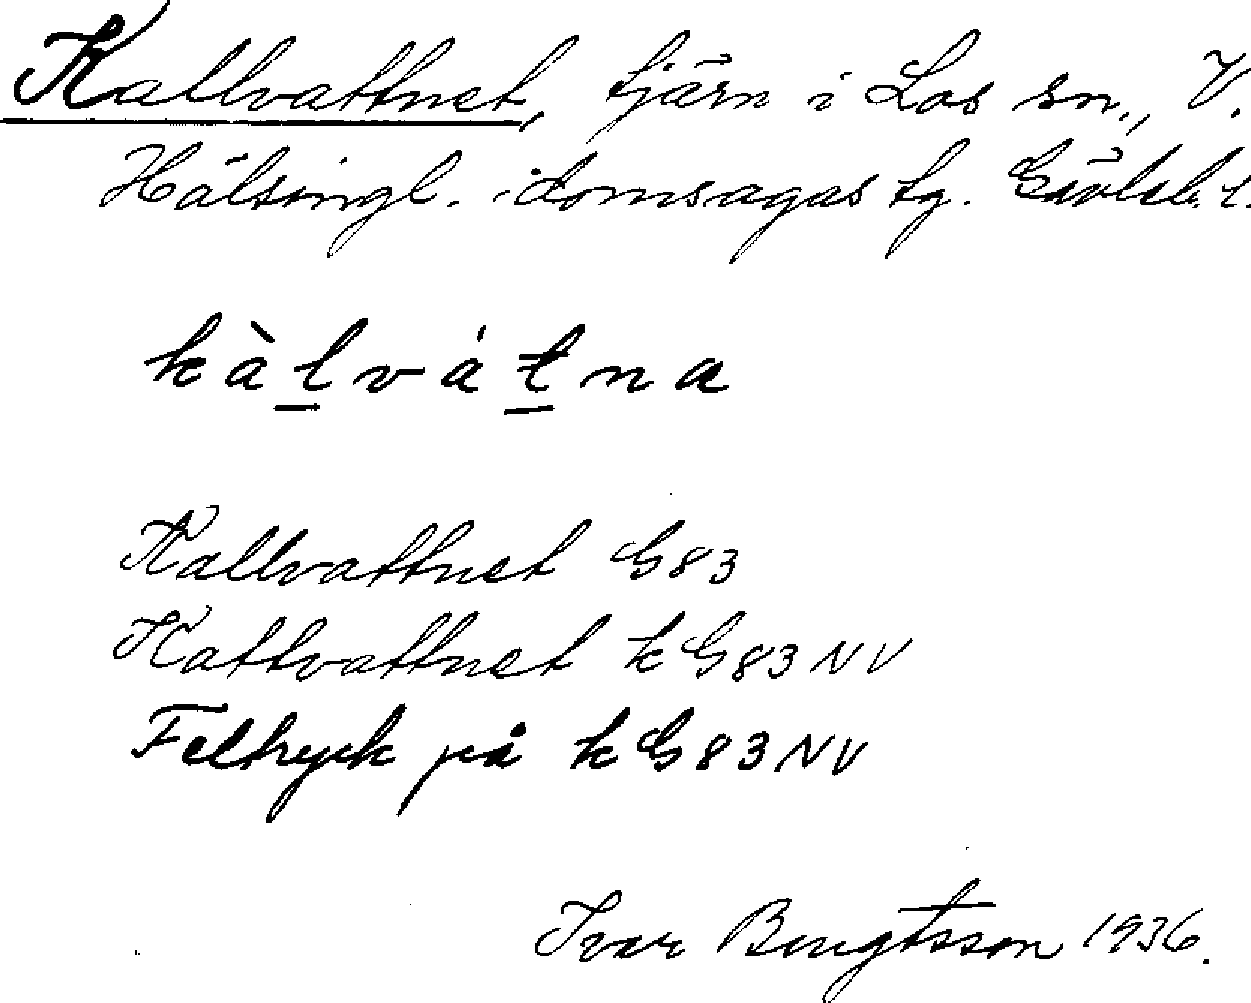 Kallvattnet, tjärn i Los sn., V.
Hälsingl. domsagas tg. Gävleb. l.
kàl̲vát̲na
Kallvattnet G83
Kattvattnet k G83NV
Feltryck på k G83NV
Ivar Bengtsson 1936.